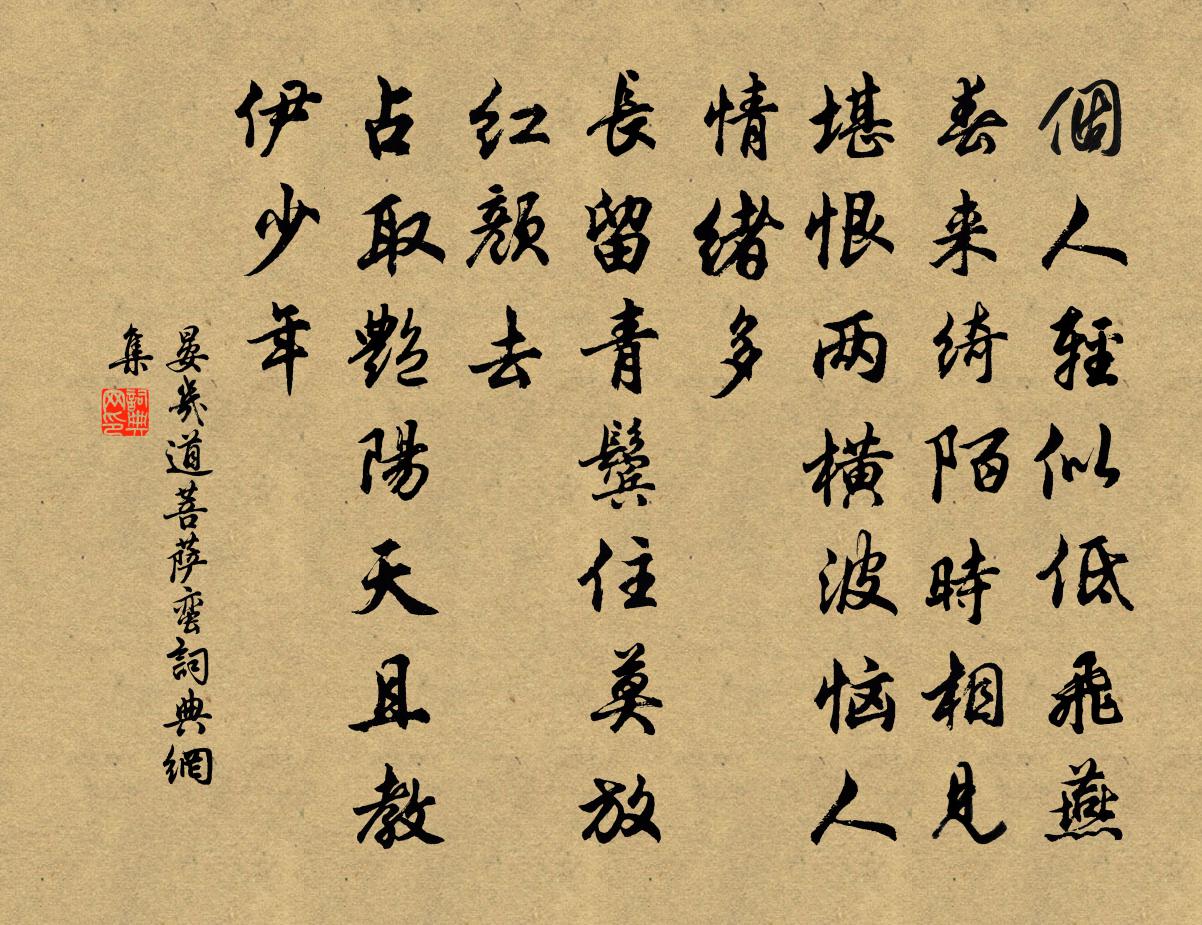 個人輕似低飛燕
春来綺陌時相見
堪恨两橫波惱人
情緒多
長留青鬓住莫放
红顏去
占取艷陽天且教
伊少年
晏幾道菩萨蛮詞典網
集
詞典网印